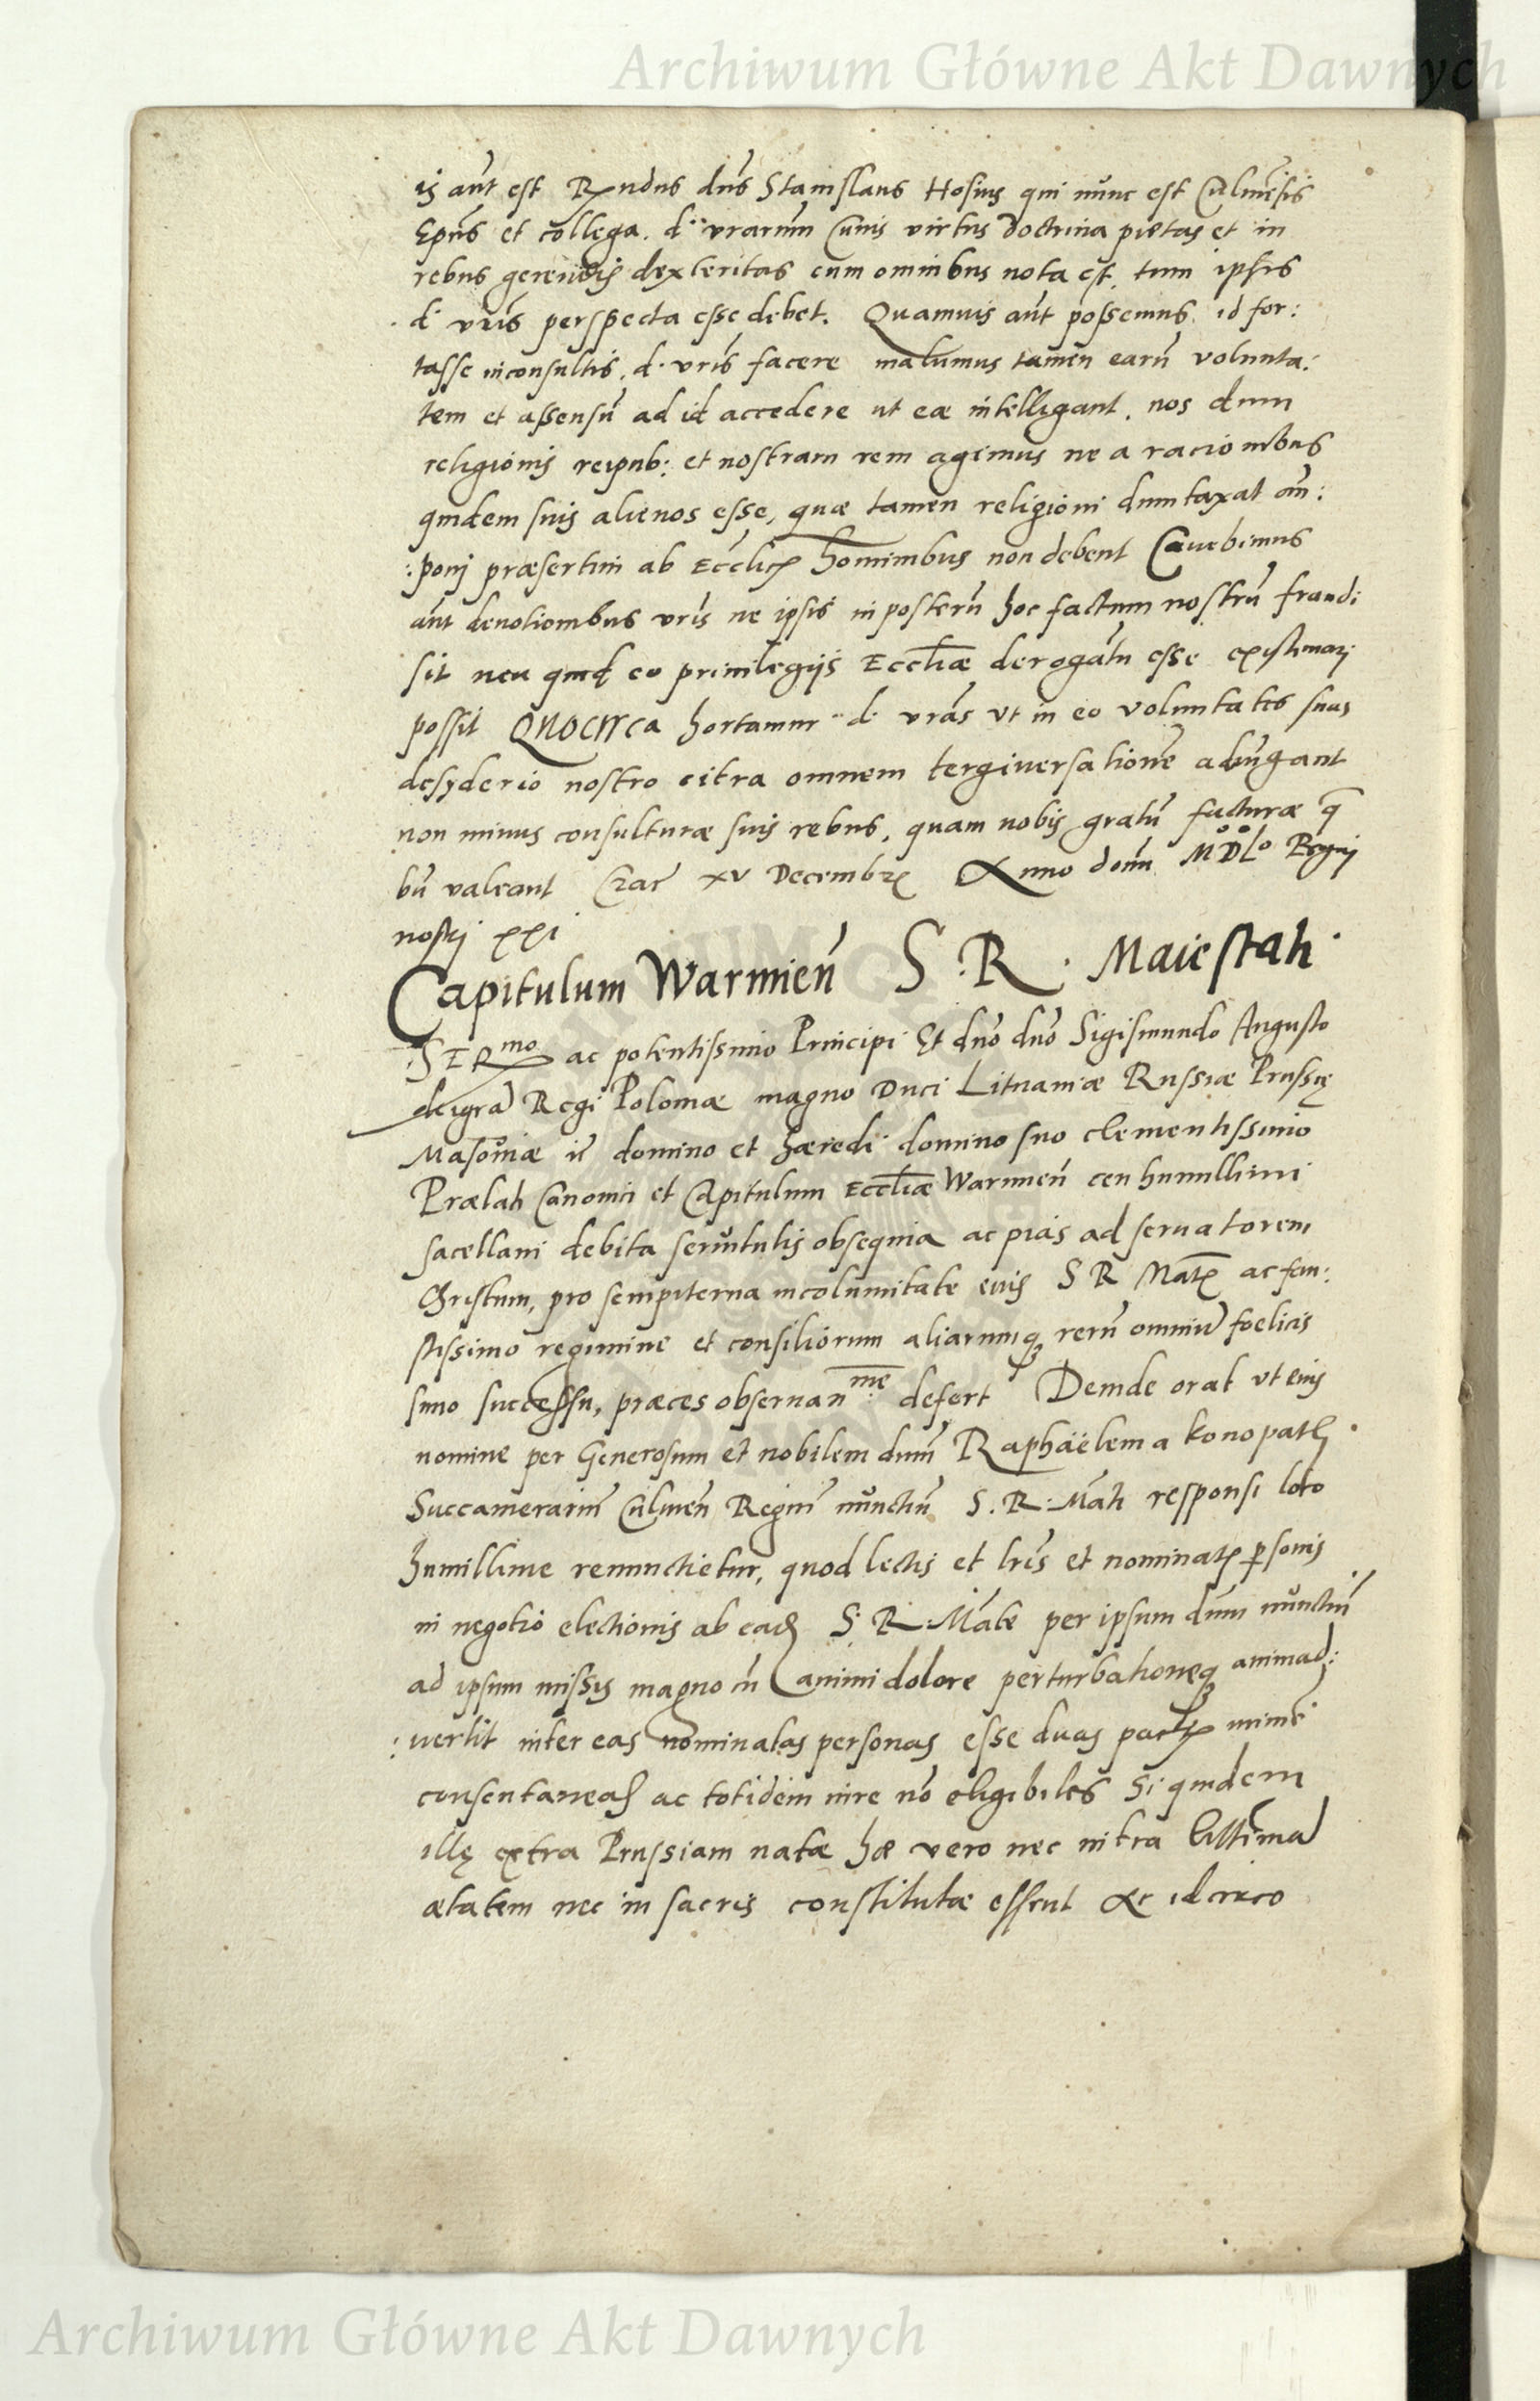 Archiwum Główne Akt Dawnych
is aūt est Rndus dn̄s Stanislaus Hosius qui nunc est Culmēsis
Epūs et collega. d. vrarum Cuius virtus doctrina pietas et in
rebus gerendis dexteritas cum omnibus nota est, tum ipsis
d. vrīs perspecta esse debet. Quamuis aūt possemus id for:
tasse inconsultis. d. vrīs facere malumus tamen earū volunta:
tem et assensū ad id accedere ut eæ intelligant. nos dum
religionis reipub: et nostram rem agimus ne a racionibus
quidem suis alienos esse, quæ tamen religioni dumtaxat an:
:poni præsertim ab Eccl̄icis hominibus non debent Cauebimus
aūt deuotionibus vrīs ne ipsis in posterū hoc factum nostrū fraudi
sit neu quid eo priuilegijs Eccl̄iæ derogātū esse existimari
possit Quocirca hortamur d. vrās vt in eo voluntates suas
desyderio nostro citra omnem tergiuersationē adiungant
non minus consulturæ suis rebus, quam nobis gratū facturæ q̄
bn̄ valeant Crac xv Decembris Anno domī MDLo Regni
nostri xxi
Capitulum Warmien̄ S. R. Maiestati
SERmo ac potentissimo Principi Et dn̄o dn̄o Sigismundo Augusto
dei gra Regi Poloniæ magno Duci Lituaniæ Russiæ Prussię
Masouiæ domino et hæredi domino suo clementissimo
Prælati Canonici et Capitulum Eccl̄iæ Warmien̄ ceu humillimi
sacellani debita seruitutis obsequia ac pias ad seruatorem
Christum, pro sempiterna incolumitate eius S R Matis ac fau:
stissimo regimine et consiliorum aliarumq; rerū omniū foelicis
simo successu, præces obseruanme defert Deinde orat vt eius
nomine per Generosum et nobilem dnūm Raphäelem a Konopath
Succamerariū Culmen̄ Regiū nunctiū S. R. Māti responsi loco
humillime renunctietur, quod lectis et lrīs et nominatis psonis
in negotio electionis ab eadē S. R. Māte per ipsum dnūm nunctiū
ad ipsum missis magno cū animi dolore perturbationeq; animad:
:uertit inter eas nominatas personas esse duas pactis minimē
consentaneas ac totidem iure nō eligibiles Siquidem
illę extra Prussiam natæ hæ vero nec intra
ætatem nec in sacris constitutæ essent Ac idcirco
Archiwum Główne Akt Dawnych